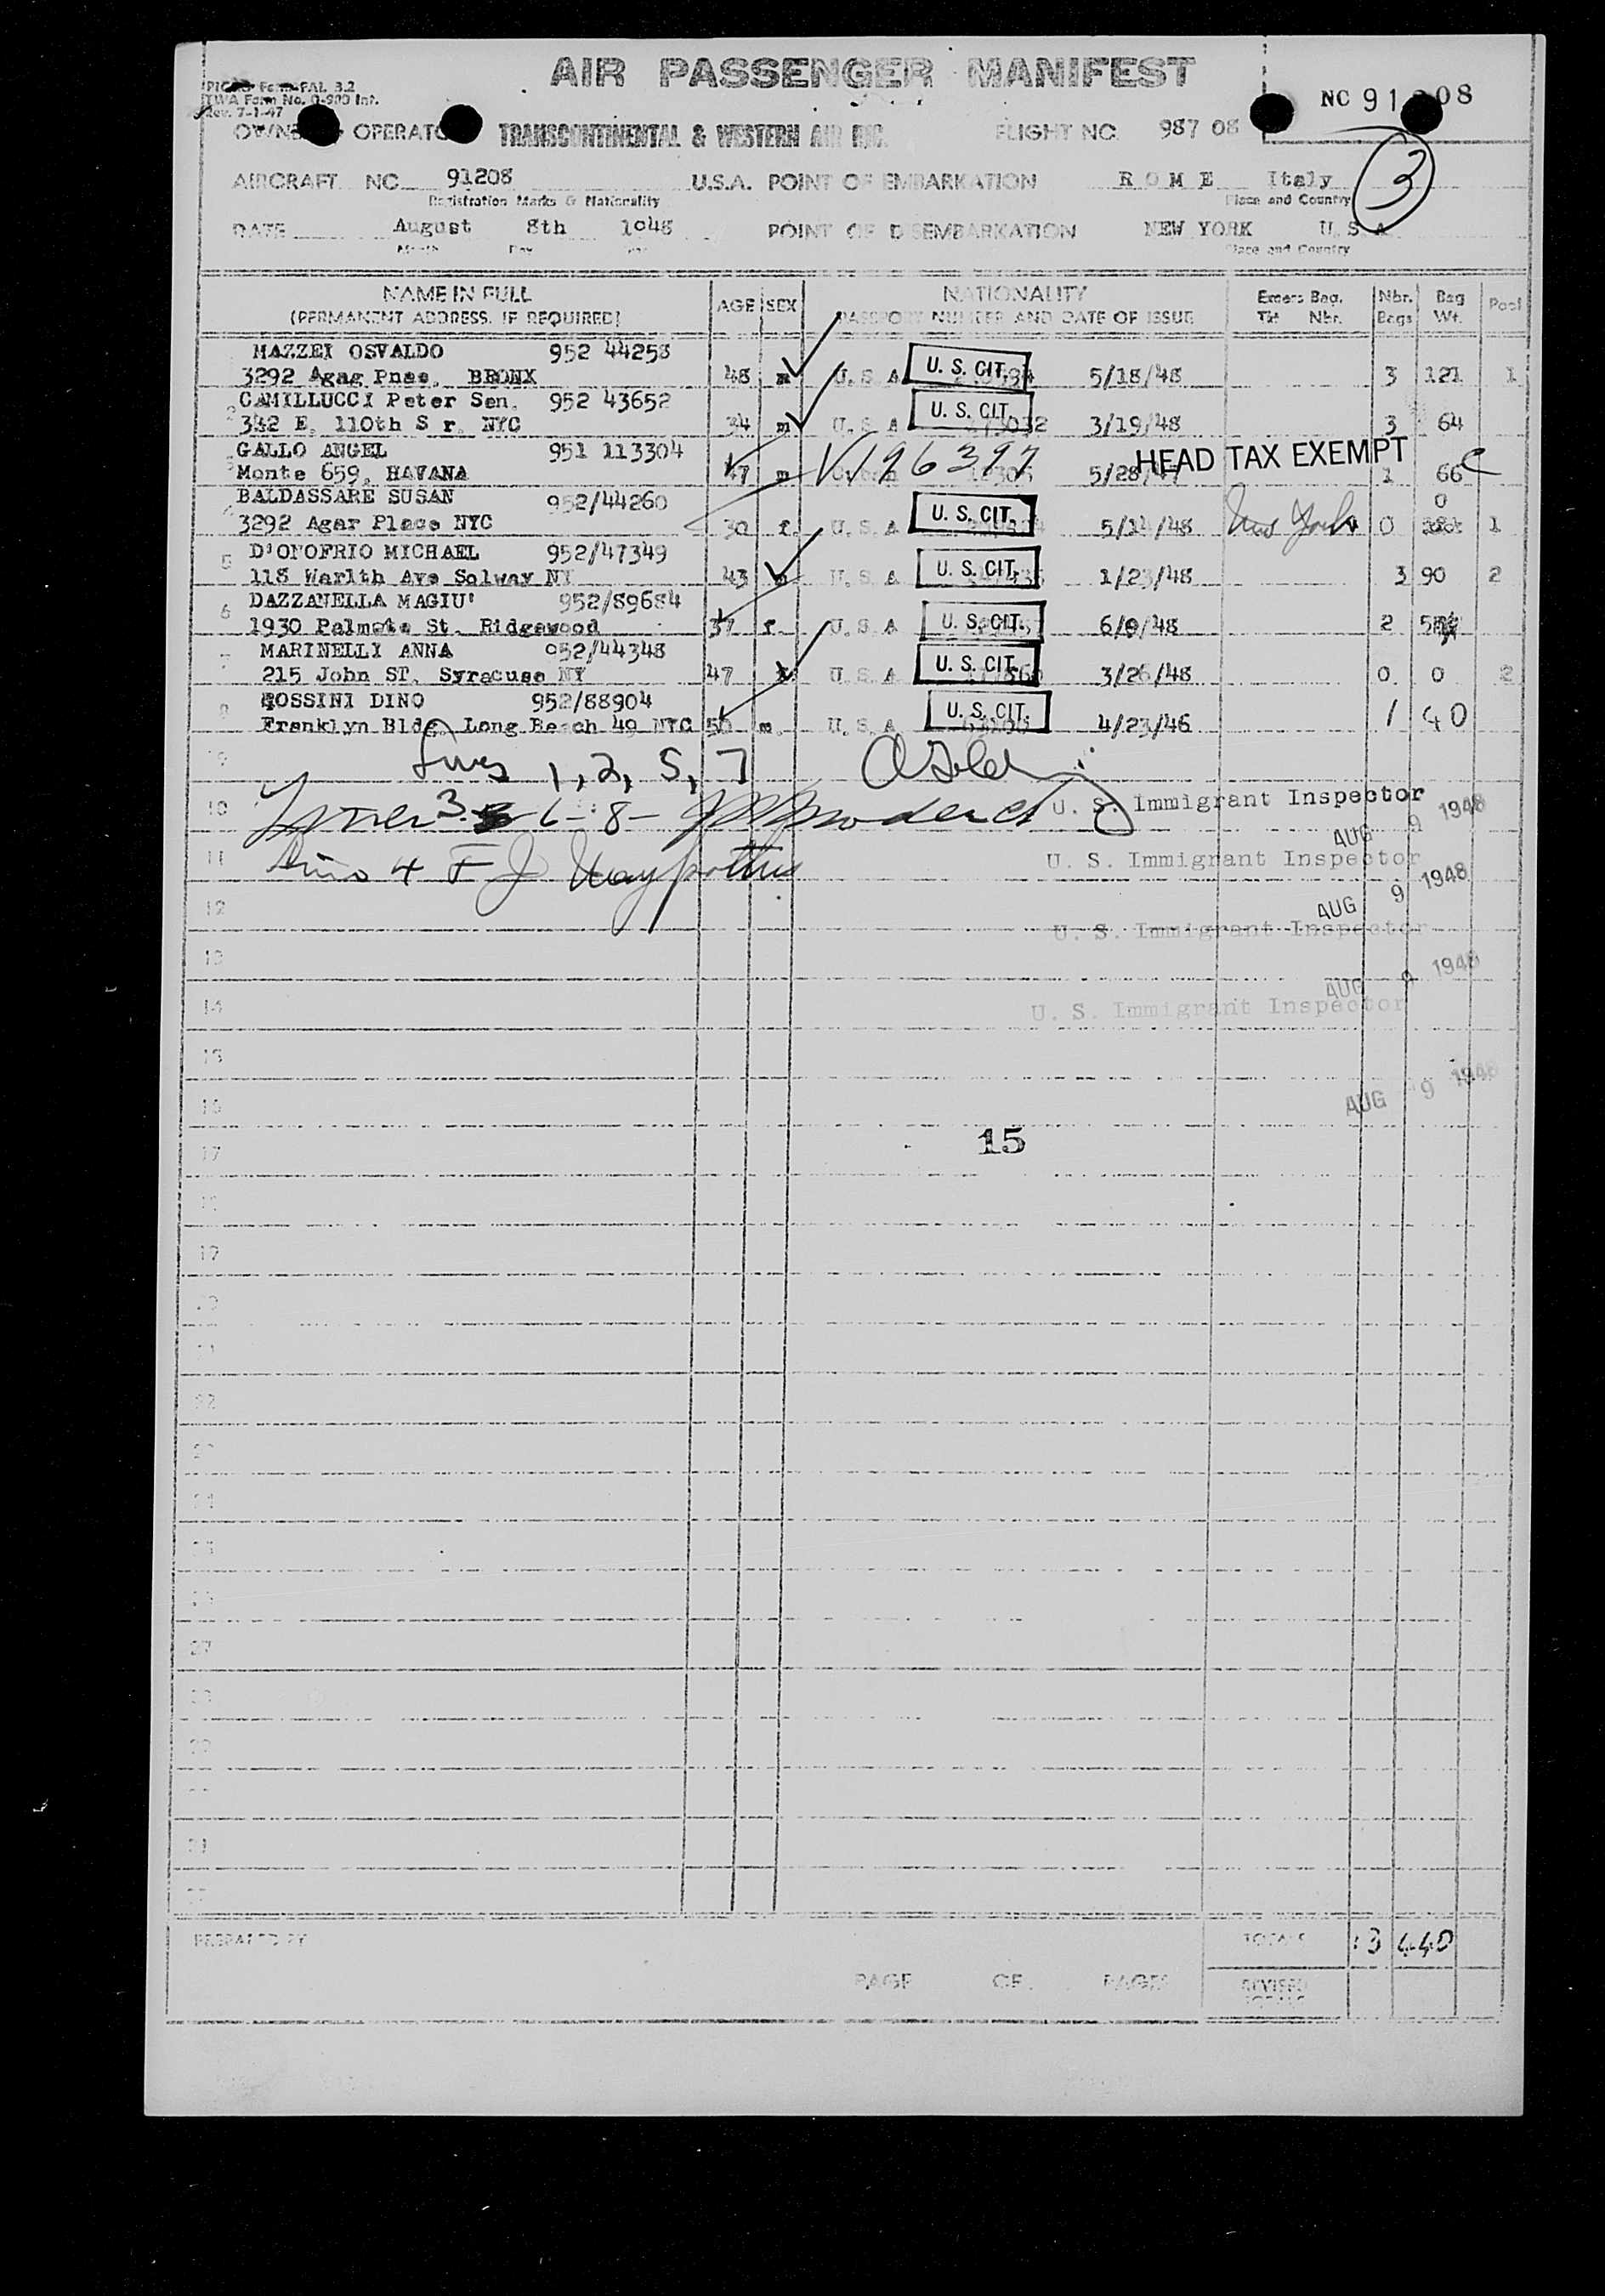 AIR PASSENGER MANIFEST
PICAO Form FAL 3.2
TWA Form No. 0-900 Int.
Rev. 7-1-47
NC 91 08
OWNE OPERATO TRANSCONTINENTAL & WESTERN AIR INC. FLIGHT NO. 987 08
3
AIRCRAFT NO 91208 U.S.A. POINT OF EMBARKATION R O M E Italy
Registration Marks & Nationality Place and Country
DATE August 8th 1048 POINT OF DISEMBARKATION NEW YORK U. S. A
Month Day Place and Country
NAME IN FULL AGE SEX NATIONALITY Emerg Bag. Nbr. Bag Pool
(PERMANENT ADDRESS. IF REQUIRED) PASSPORT NUMBER AND DATE OF ISSUE Tkt Nbr. Bags Wt.
MAZZEI OSVALDO 952 44258
3292 Agag Pnae, BRONX 48 m U. S A U. S. CIT. 5/18/48 3 121 1
2 CAMILLUCCI Peter Sen. 952 43652
342 E. 110th S r. NYC 34 m U. S A U. S. CIT. 3/19/48 3 64
3 GALLO ANGEL 951 113304
Monte 659, HAVANA 47 m V196397 5/28/47 HEAD TAX EXEMPT 1 66 c
4 BALDASSARE SUSAN 952/44260 0
3292 Agar Place NYC 30 f. U. S A U. S. CIT. 5/14/48 New York 0 1
5 D'ONOFRIO MICHAEL 952/47349
118 Warlth Ave Solway NY 43 m U. S A U. S. CIT. 1/23/48 3 90 2
6 DAZZANELLA MAGIU' 952/89684
1930 Palmete St. Ridgewood 37 f. U. S A U. S. CIT. 6/9/48 2
7 MARINELLI ANNA 952/44348
215 John ST. Syracuse NY 47 U. S. A U. S. CIT. 3/26/48 0 0 2
8 ROSSINI DINO 952/88904
Franklyn Bldg. Long Beach 49 NYC 50 m. U. S. A U. S. CIT. 4/23/46 1 40
9 Lines 1, 2, 5, 7
10 3 6-8- U. S. Immigrant Inspector
AUG 9 1948
11 Line 4 U. S. Immigrant Inspector
AUG 9 1948
12 U. S. Immigrant Inspector
13 AUG 9 1948
14 U. S. Immigrant Inspector
15
16 AUG 9 1948
17 15
18
19
20
21
22
23
24
25
26
27
28
29
31
PREPARED BY TOTALS 13 440
PAGE OF PAGES REVISED
TOTALS